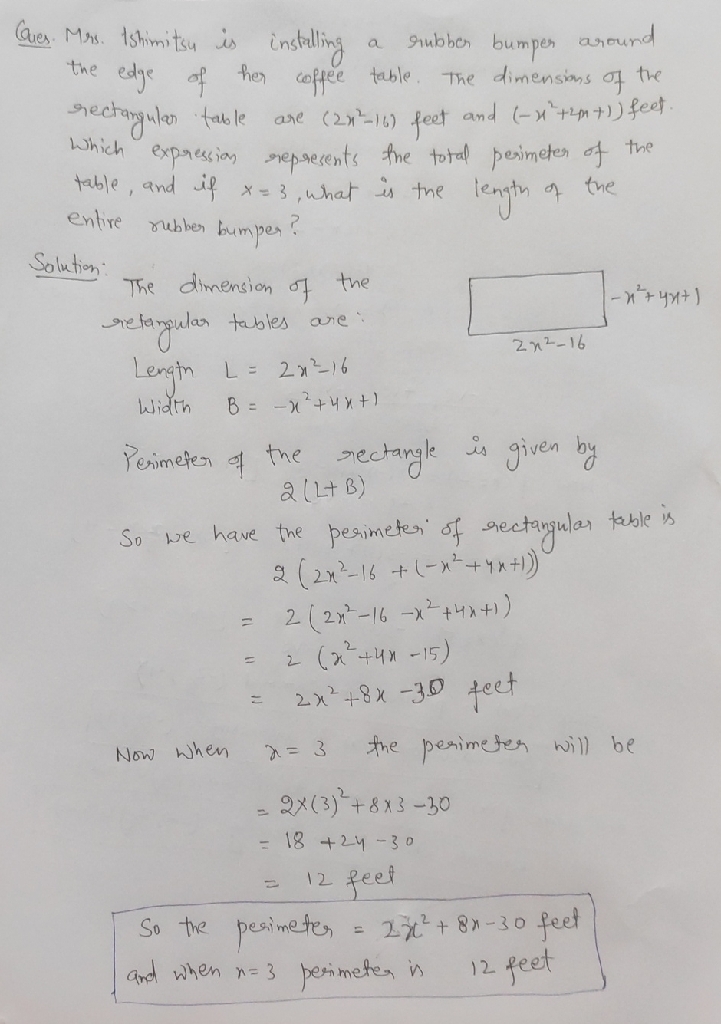 Ques. Mrs. Ishimitsu is installing a rubber bumper around
the edge of her coffee table. The dimensions of the
rectangular table are (2x²-16) feet and (-x²+4x+1) feet.
Which expression represents the total perimeter of the
table, and if x = 3, what is the length of the
entire rubber bumper?
Solution:
The dimension of the
retangular tables are:
-x²+4x+1
2x²-16
Length L = 2x²-16
Width B = -x²+4x+1
Perimeter of the rectangle is given by
2(L+B)
So we have the perimeter of rectangular table is
2(2x²-16 +(-x²+4x+1))
= 2(2x²-16 -x²+4x+1)
= 2 (x²+4x -15)
= 2x²+8x -30 feet
Now when x = 3 the perimeter will be
= 2×(3)²+8×3-30
= 18 +24 -30
= 12 feet
So the perimeter = 2x² + 8x-30 feet
and when x=3 perimeter is 12 feet